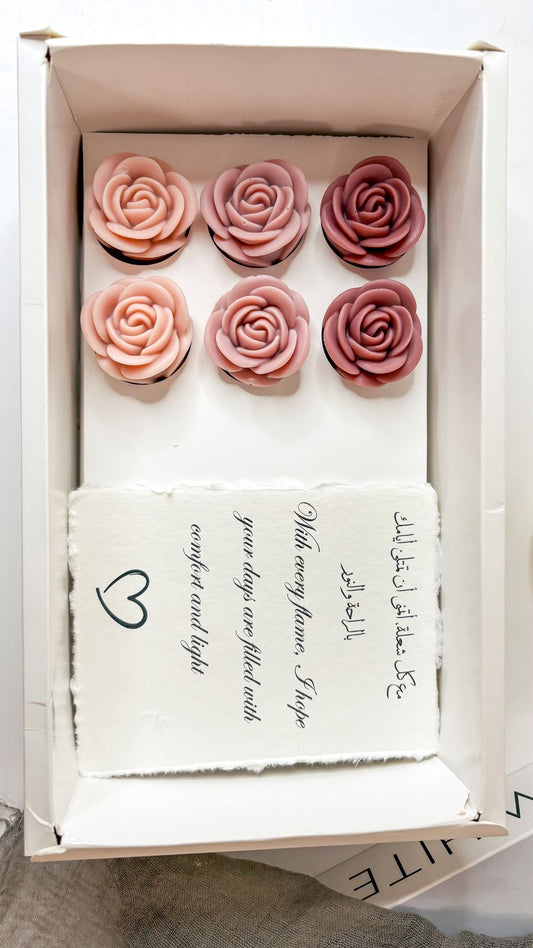 مع كل شعلة، أتمنى أن تمتلئ أيامك
بالراحة والنور
With every flame, I hope
your days are filled with
comfort and light
WHITE